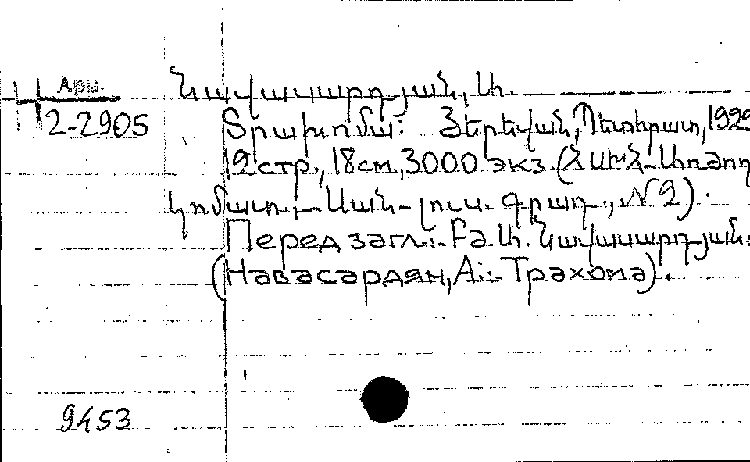 Арм.
2-2905
Նավասարդյան, Ա.
Տրախոմա: Յերեվան, Պետհրատ, 1929
12 стр., 18 см., 3000 экз. (ՀՍԽՀ-Առժող
կոմատ.- Սան-լուս. գրադ., N 2).
Перед загл.:- Բժ. Ա. Նավասարդյան:
(Навасардян, А.:- Трахома).
9453